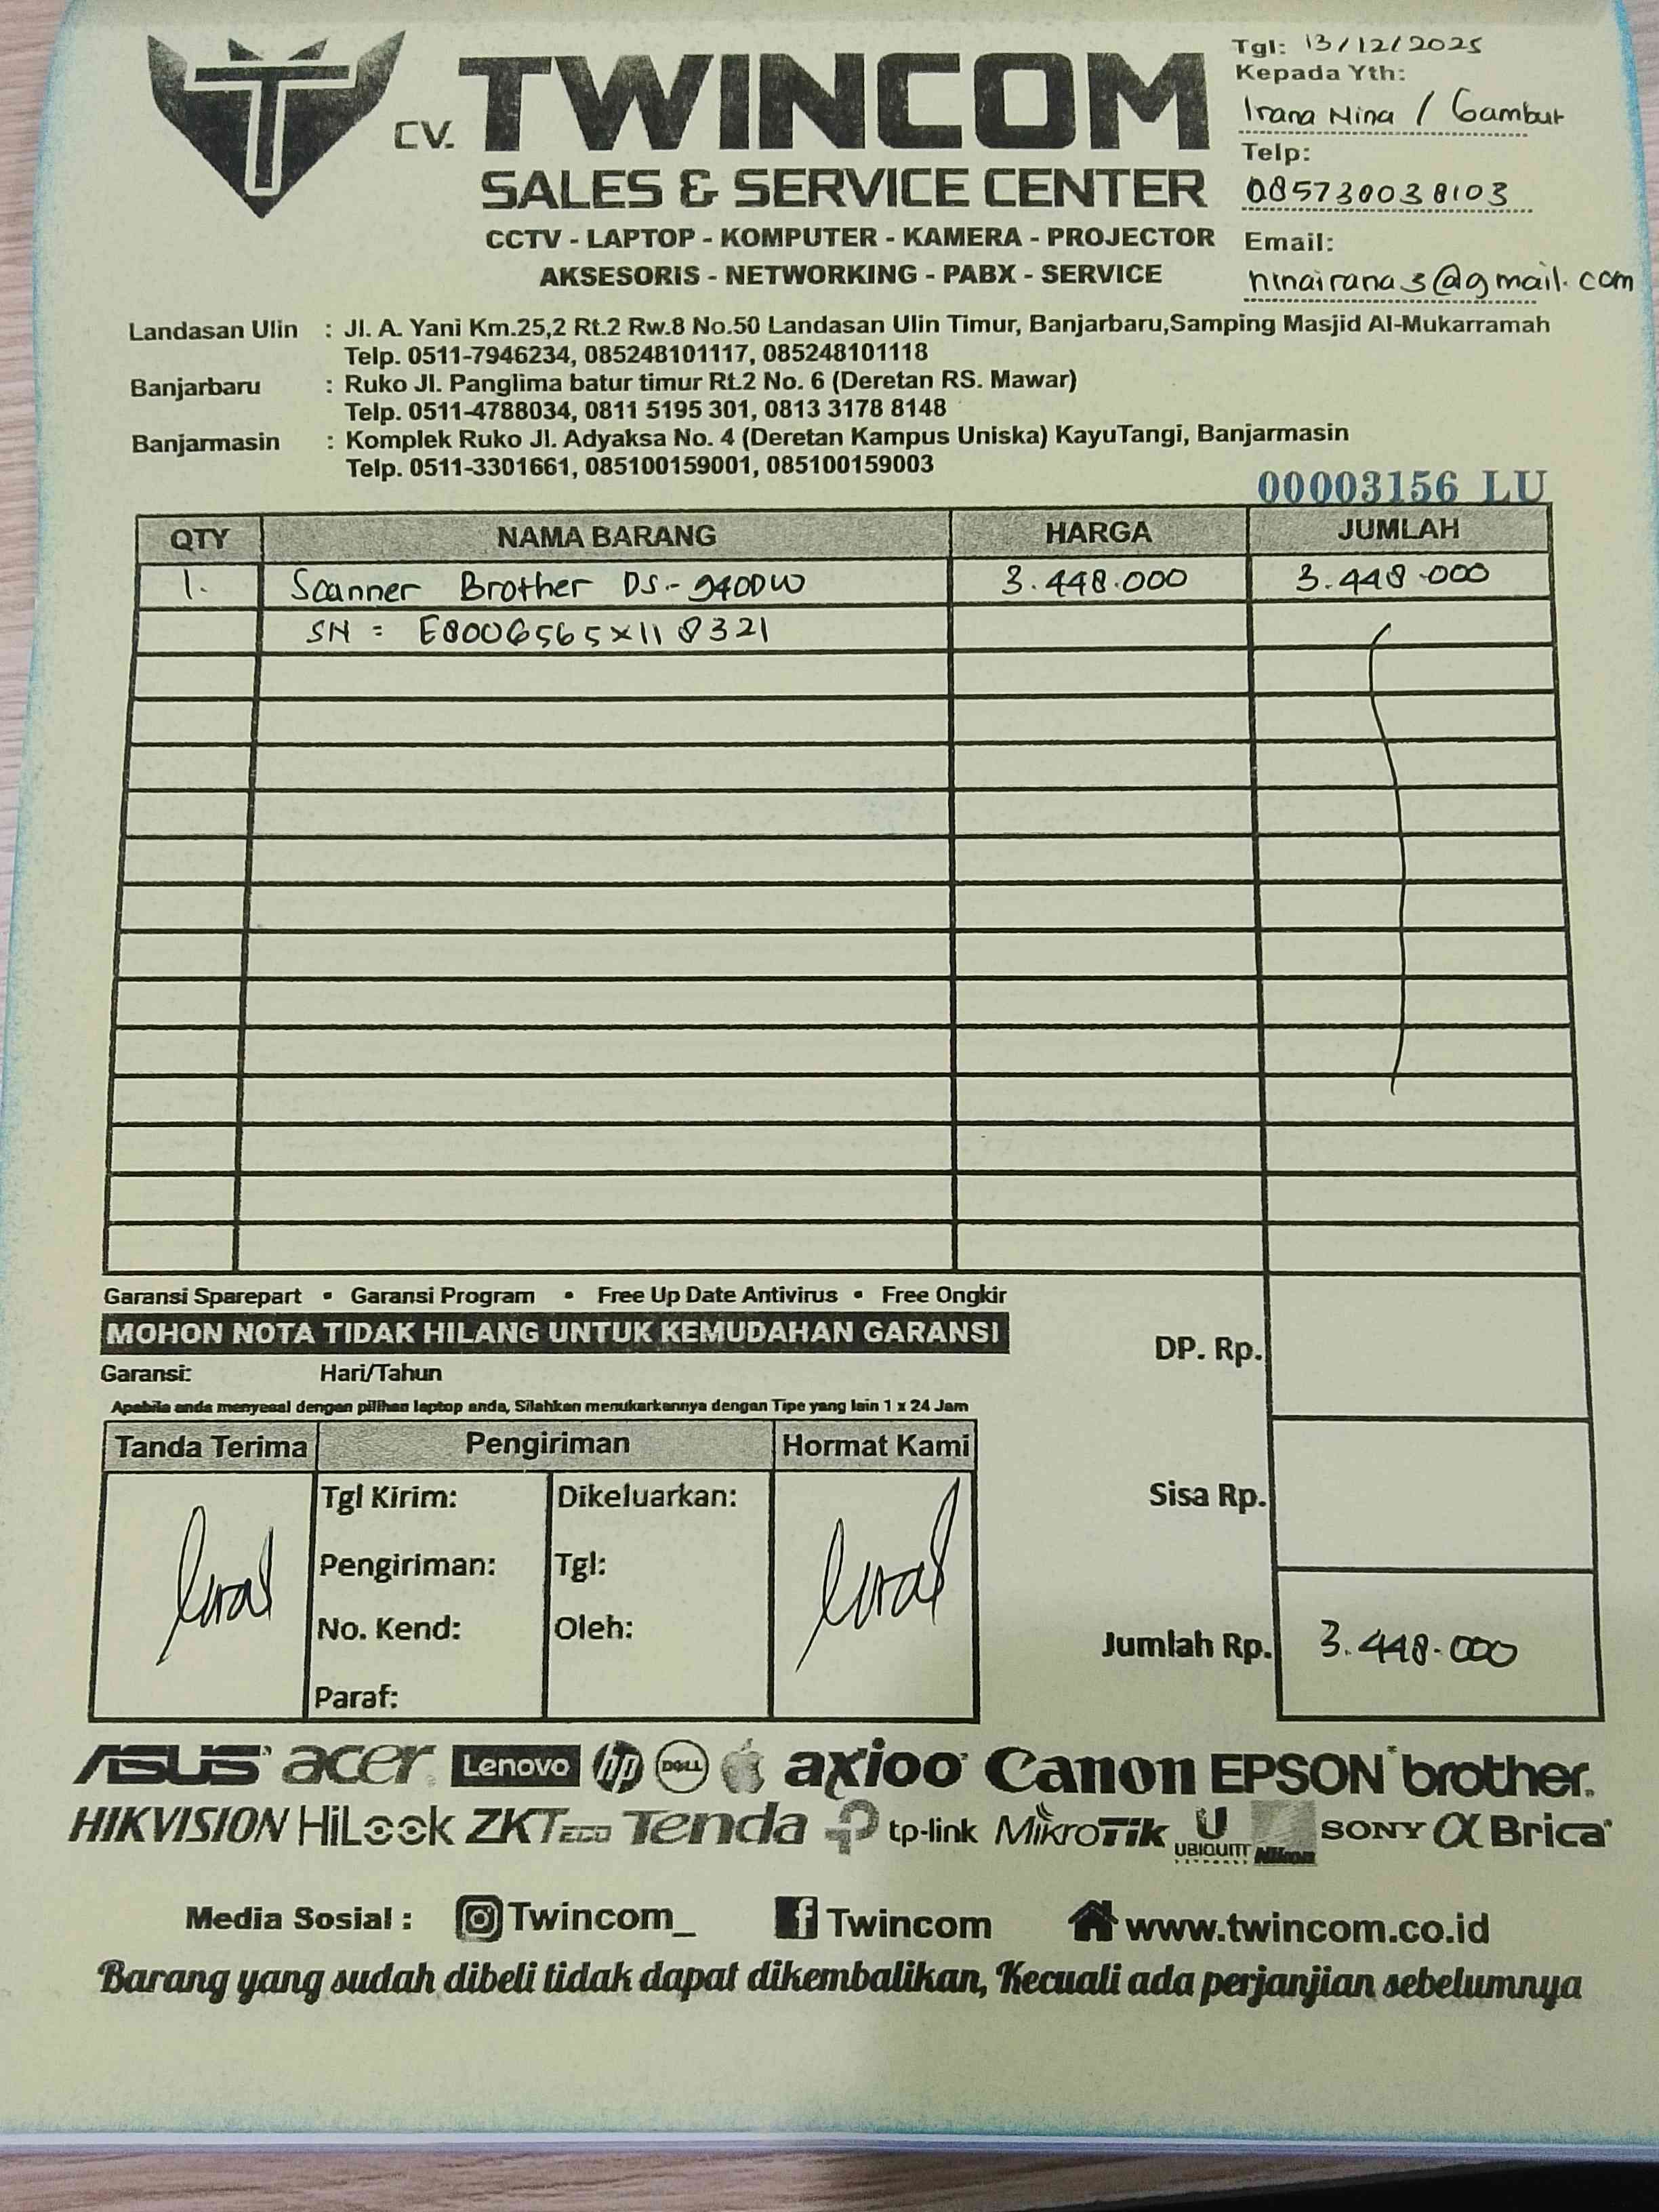 CV. TWINCOM
SALES & SERVICE CENTER
CCTV - LAPTOP - KOMPUTER - KAMERA - PROJECTOR
AKSESORIS - NETWORKING - PABX - SERVICE
Tgl: 13/12/2025
Kepada Yth:
Irana Nina / Gambut
Telp:
085730038103
Email:
ninairana3@gmail.com
Landasan Ulin : Jl. A. Yani Km.25,2 Rt.2 Rw.8 No.50 Landasan Ulin Timur, Banjarbaru,Samping Masjid Al-Mukarramah
Telp. 0511-7946234, 085248101117, 085248101118
Banjarbaru : Ruko Jl. Panglima batur timur Rt.2 No. 6 (Deretan RS. Mawar)
Telp. 0511-4788034, 0811 5195 301, 0813 3178 8148
Banjarmasin : Komplek Ruko Jl. Adyaksa No. 4 (Deretan Kampus Uniska) KayuTangi, Banjarmasin
Telp. 0511-3301661, 085100159001, 085100159003
00003156 LU
QTY NAMA BARANG HARGA JUMLAH
1. Scanner Brother DS-940DW 3.448.000 3.448.000
SN = E8006565X118321
Garansi Sparepart • Garansi Program • Free Up Date Antivirus • Free Ongkir
MOHON NOTA TIDAK HILANG UNTUK KEMUDAHAN GARANSI
Garansi: Hari/Tahun
Apabila anda menyesal dengan pilihan laptop anda, Silahkan menukarkannya dengan Tipe yang lain 1 x 24 Jam
DP. Rp.
Sisa Rp.
Jumlah Rp. 3.448.000
Tanda Terima Pengiriman Hormat Kami
Tgl Kirim: Dikeluarkan:
Pengiriman: Tgl:
No. Kend: Oleh:
Paraf:
ASUS acer Lenovo hp DELL axioo Canon EPSON brother.
HIKVISION HiLook ZKTECO Tenda tp-link MikroTik U UBIQUITI Nikon SONY α Brica
Media Sosial : Twincom_ f Twincom www.twincom.co.id
Barang yang sudah dibeli tidak dapat dikembalikan, Kecuali ada perjanjian sebelumnya